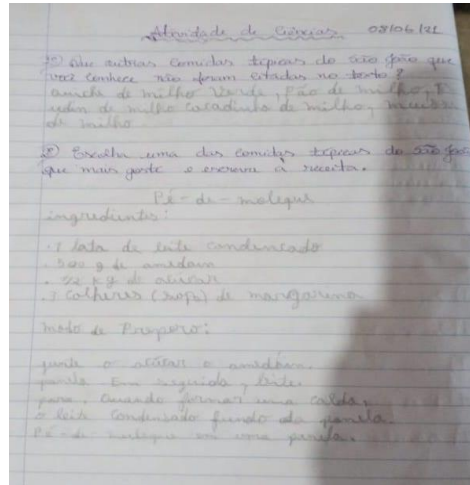 Atividade de Ciências 08/06/21
1) Que outras comidas típicas do São João que
você conhece não foram citadas no texto?
de milho verde, pão de milho,
de milho casadinho de milho,
de milho
2) Escolha uma das comidas típicas do São João
que mais gosta e escreva a receita.
Pé-de-moleque
ingredientes:
. 1 lata de leite condensado
. 500 g de
. 1/2 kg de
. 3 colheres (sopa) de margarina
modo de Preparo:
junte o
panela Em seguida, leite
para. Quando formar uma calda,
o leite condensado fundo da panela.
Pé-de moleque em uma panela.